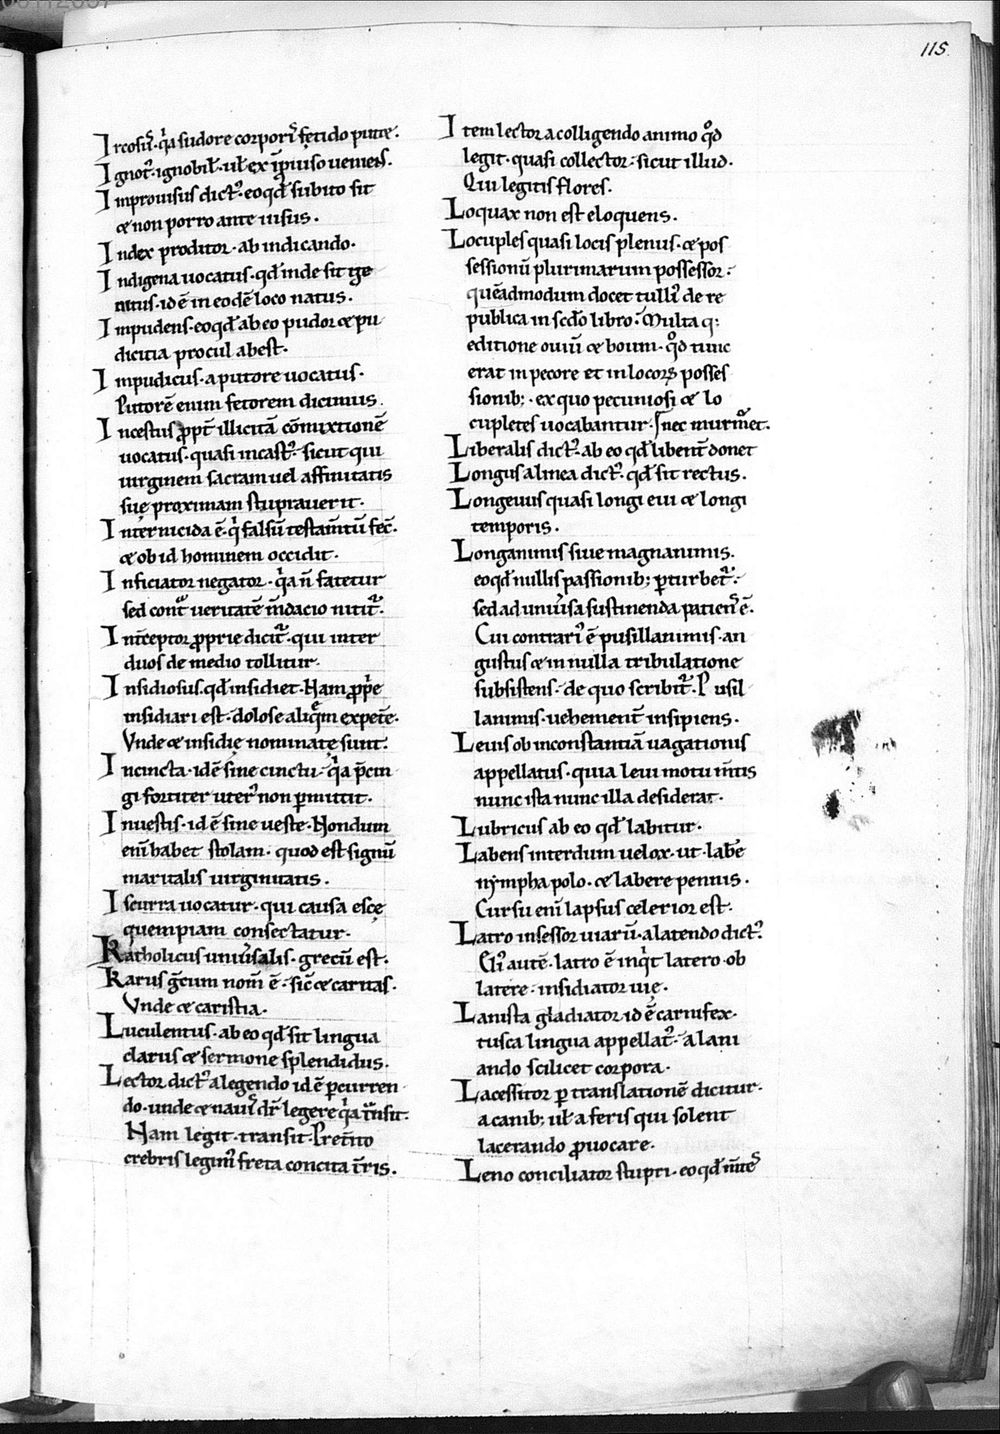 115
Ircosus̄. q̇a sudore corporis̄ fętido putre.
Ignot᷒. ignobil̄. ul̄ ex īp̱uiso ueniens.
Inprouisus dict᷒. eo qd̄ subito sit
& non porro ante uisus.
Index proditor. ab indicando.
Indigena uocatus. qd̄ inde sit ge
nitus. id ē in eodē loco natus.
Impudens. eo qd̄ ab eo pudor & pu
dicitia procul abest.
Impudicus. a putore uocatus.
Putorē enim fetorem dicimus.
Incestus ꝓpt̄ illicitā cōmixtionē
uocatus. quasi incast᷒. sicut qui
uirginem sacram uel affinitatis
suę proximam stuprauerit.
Internicida ē. q̇ falsū testam̄tū fec̄.
& ob id hominem occidit.
Inficiator negator. q̇a n̄ fatetur
sed cont̄ ueritatē m̄dacio nitit᷒.
Int̄ceptor ꝓprie dicit᷒. qui inter
duos de medio tollitur.
Insidiosus. qd̄ insidiet. Nam ꝓp̄e
insidiari est. dolose aliq̄m expete̅.
Vnde & insidię nominatę sunt.
Incincta. id ē sine cinctu. q̇a p̄cin
gi fortiter uter᷒ non ꝑmittit.
Inuestis. id ē sine ueste. Nondum
eni̅ habet stolam. quod est signū
maritalis uirginitatis.
Iscurra uocatur. qui causa escę
quempiam consectatur.
Katholicus uniu̅salis. grecū est.
Karus ḡcum nom̄ ē. sic̄ & caritas.
Vnde & caristia.
Luculentus. ab eo qd̄ sit lingua
clarus & sermone splendidus.
Lector dict᷒ a legendo id ē ꝑcurren
do. unde & nauis̄ dr̄ legere q̇a t̄nsit.
Nam legit. transit. Pret̄ito
crebris legim᷒ freta concita t̄ris.
Item lector a colligendo animo q̊d
legit. quasi collector. sicut illud.
Qui legitis flores.
Loquax non est eloquens.
Locuples quasi locis plenus. & pos
sessionū plurimarum possessor.
quēadmodum docet tulli᷒ de re
publica in scd̄o libro. Multa q;
editione ouiū & boum. q̊d tunc
erat in pecore et in locorꝝ posses
sionib;. ex quo pecuniosi & lo
cupletes uocabantur. ſnec murm̄et.
Liberalis dict᷒. ab eo qd̄ libent̄ donet
Longus a linea dict᷒. qd̄ sit rectus.
Longeuus quasi longi eui & longi
temporis.
Longanimis siue magnanimis.
eo qd̄ nullis passionib; ꝑturbet᷒.
sed ad uniu̅sa sustinenda patiens̄ ē.
Cui contrari᷒ ē pusillanimis. an
gustus & in nulla tribulatione
subsistens. de quo scribit᷒. Pusil
lanimis. uehement̄ insipiens.
Leuis ob inconstantiā uagationis
appellatus. quia leui motu m̄tis
nunc ista nunc illa desiderat.
Lubricus ab eo qd̄ labitur.
Labens interdum uelox. ut. lab̄e
nẏmpha polo. & labere pennis.
Cursu eni̅ lapsus celerior est.
Latro insessor uiarū. a latendo dict᷒.
Eli᷒ autē. latro ē inq̇t latero. ob
latere. insidiator uię.
Lanista gladiator id ē carnifex.
tusca lingua appellat᷒. a lani
ando scilicet corpora.
Lacessitor ꝑ translationē dicitur.
a canib; ul̄ a feris qui solent
lacerando ꝓuocare.
Leno conciliator stupri. eo qd̄ m̄tes̄